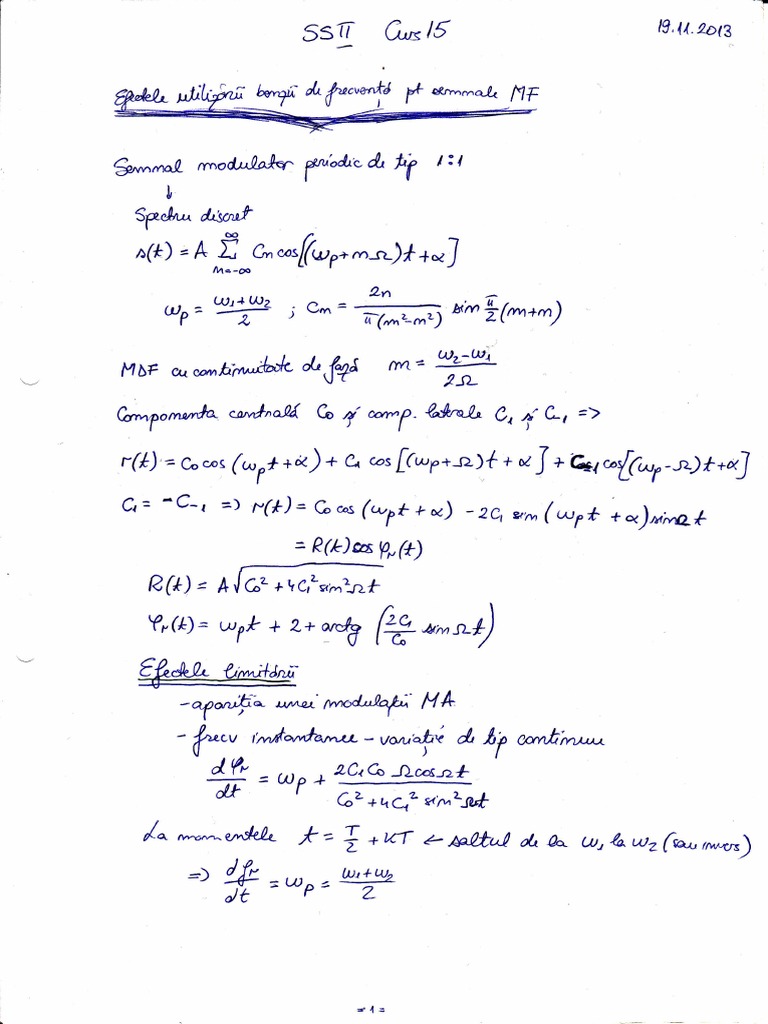 SSII Curs 5
19.11.2013
Efectele utilizării benzii de frecvență pt semnale MF
Semnal modulator periodic de tip 1:1
↓
Spectru discret
s(t) = A Σ_{n=-∞}^{∞} Cn cos[(ωp + nΩ)t + α]
ωp = (ω1+ω2)/2 ; Cn = 2n/(π(m²-n²)) sin π/2 (m+n)
MDF cu continuitate de fază m = (ω2-ω1)/2Ω
Componenta centrală C0 și comp. laterale C1 și C-1 =>
r(t) = C0 cos(ωpt + α) + C1 cos[(ωp+Ω)t + α] + C-1 cos[(ωp-Ω)t + α]
C1 = -C-1 => r(t) = C0 cos(ωpt + α) - 2C1 sin(ωpt + α) sinΩt
= R(t) cos φr(t)
R(t) = A√(C0² + 4C1² sin²Ωt)
φr(t) = ωpt + 2 + arctg (2C1/C0 sin Ωt)
Efectele limitării
- apariția unei modulații MA
- frecv instantanee - variație de tip continuu
dφr/dt = ωp + (2C1C0 Ω cosΩt)/(C0² + 4C1² sin²Ωt)
La momentele t = T/2 + KT ← saltul de la ω1 la ω2 (sau invers)
=> dφr/dt = ωp = (ω1+ω2)/2
= 1 =